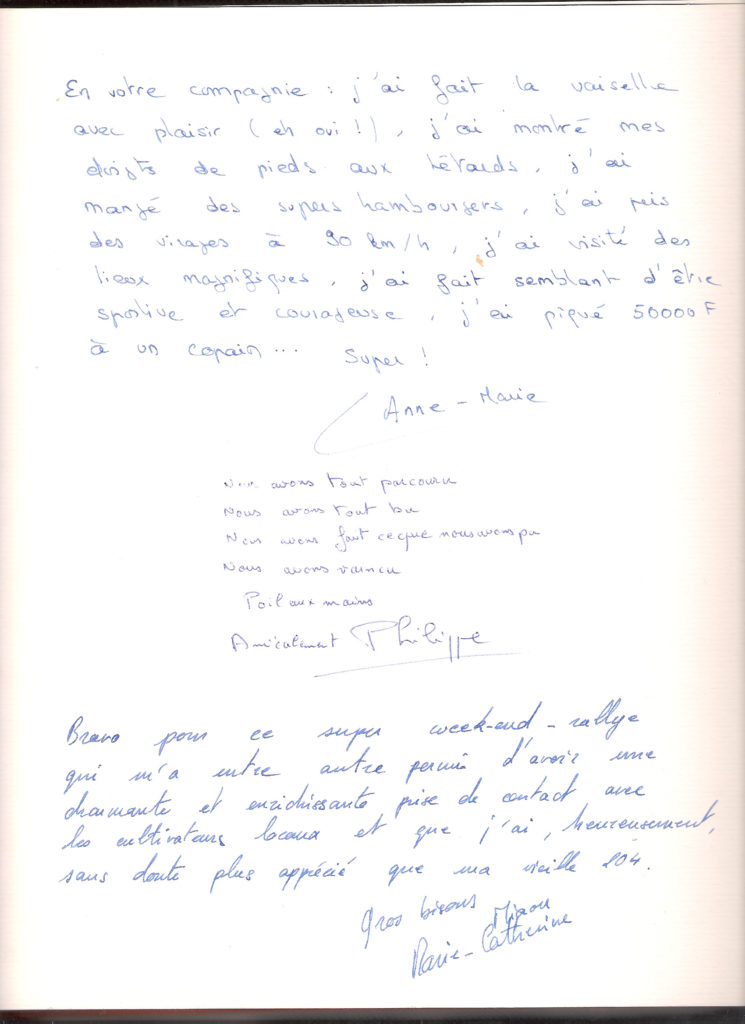 En votre compagnie : j'ai fait la vaiselle
avec plaisir ( eh oui ! ) , j'ai montré mes
doigts de pieds aux têtards , j'ai
mangé des supers hambourgers , j'ai pris
des virages à 90 km/h , j'ai visité des
lieux magnifiques , j'ai fait semblant d'être
sportive et courageuse , j'ai piqué 50000 F
à un copain ... Super !
Anne - Marie
Nous avons tout parcouru
Nous avons tout bu
Nous avons fait ce que nous avons pu
Nous avons vaincu
Poil aux mains
Amicalement Philippe
Bravo pour ce super week-end - rallye
qui m'a entre autre permis d'avoir une
charmante et enrichissante prise de contact avec
les cultivateurs locaux et que j'ai , heureusement,
sans doute plus apprécié que ma vieille 204.
Gros bisous
Marie - Catherine